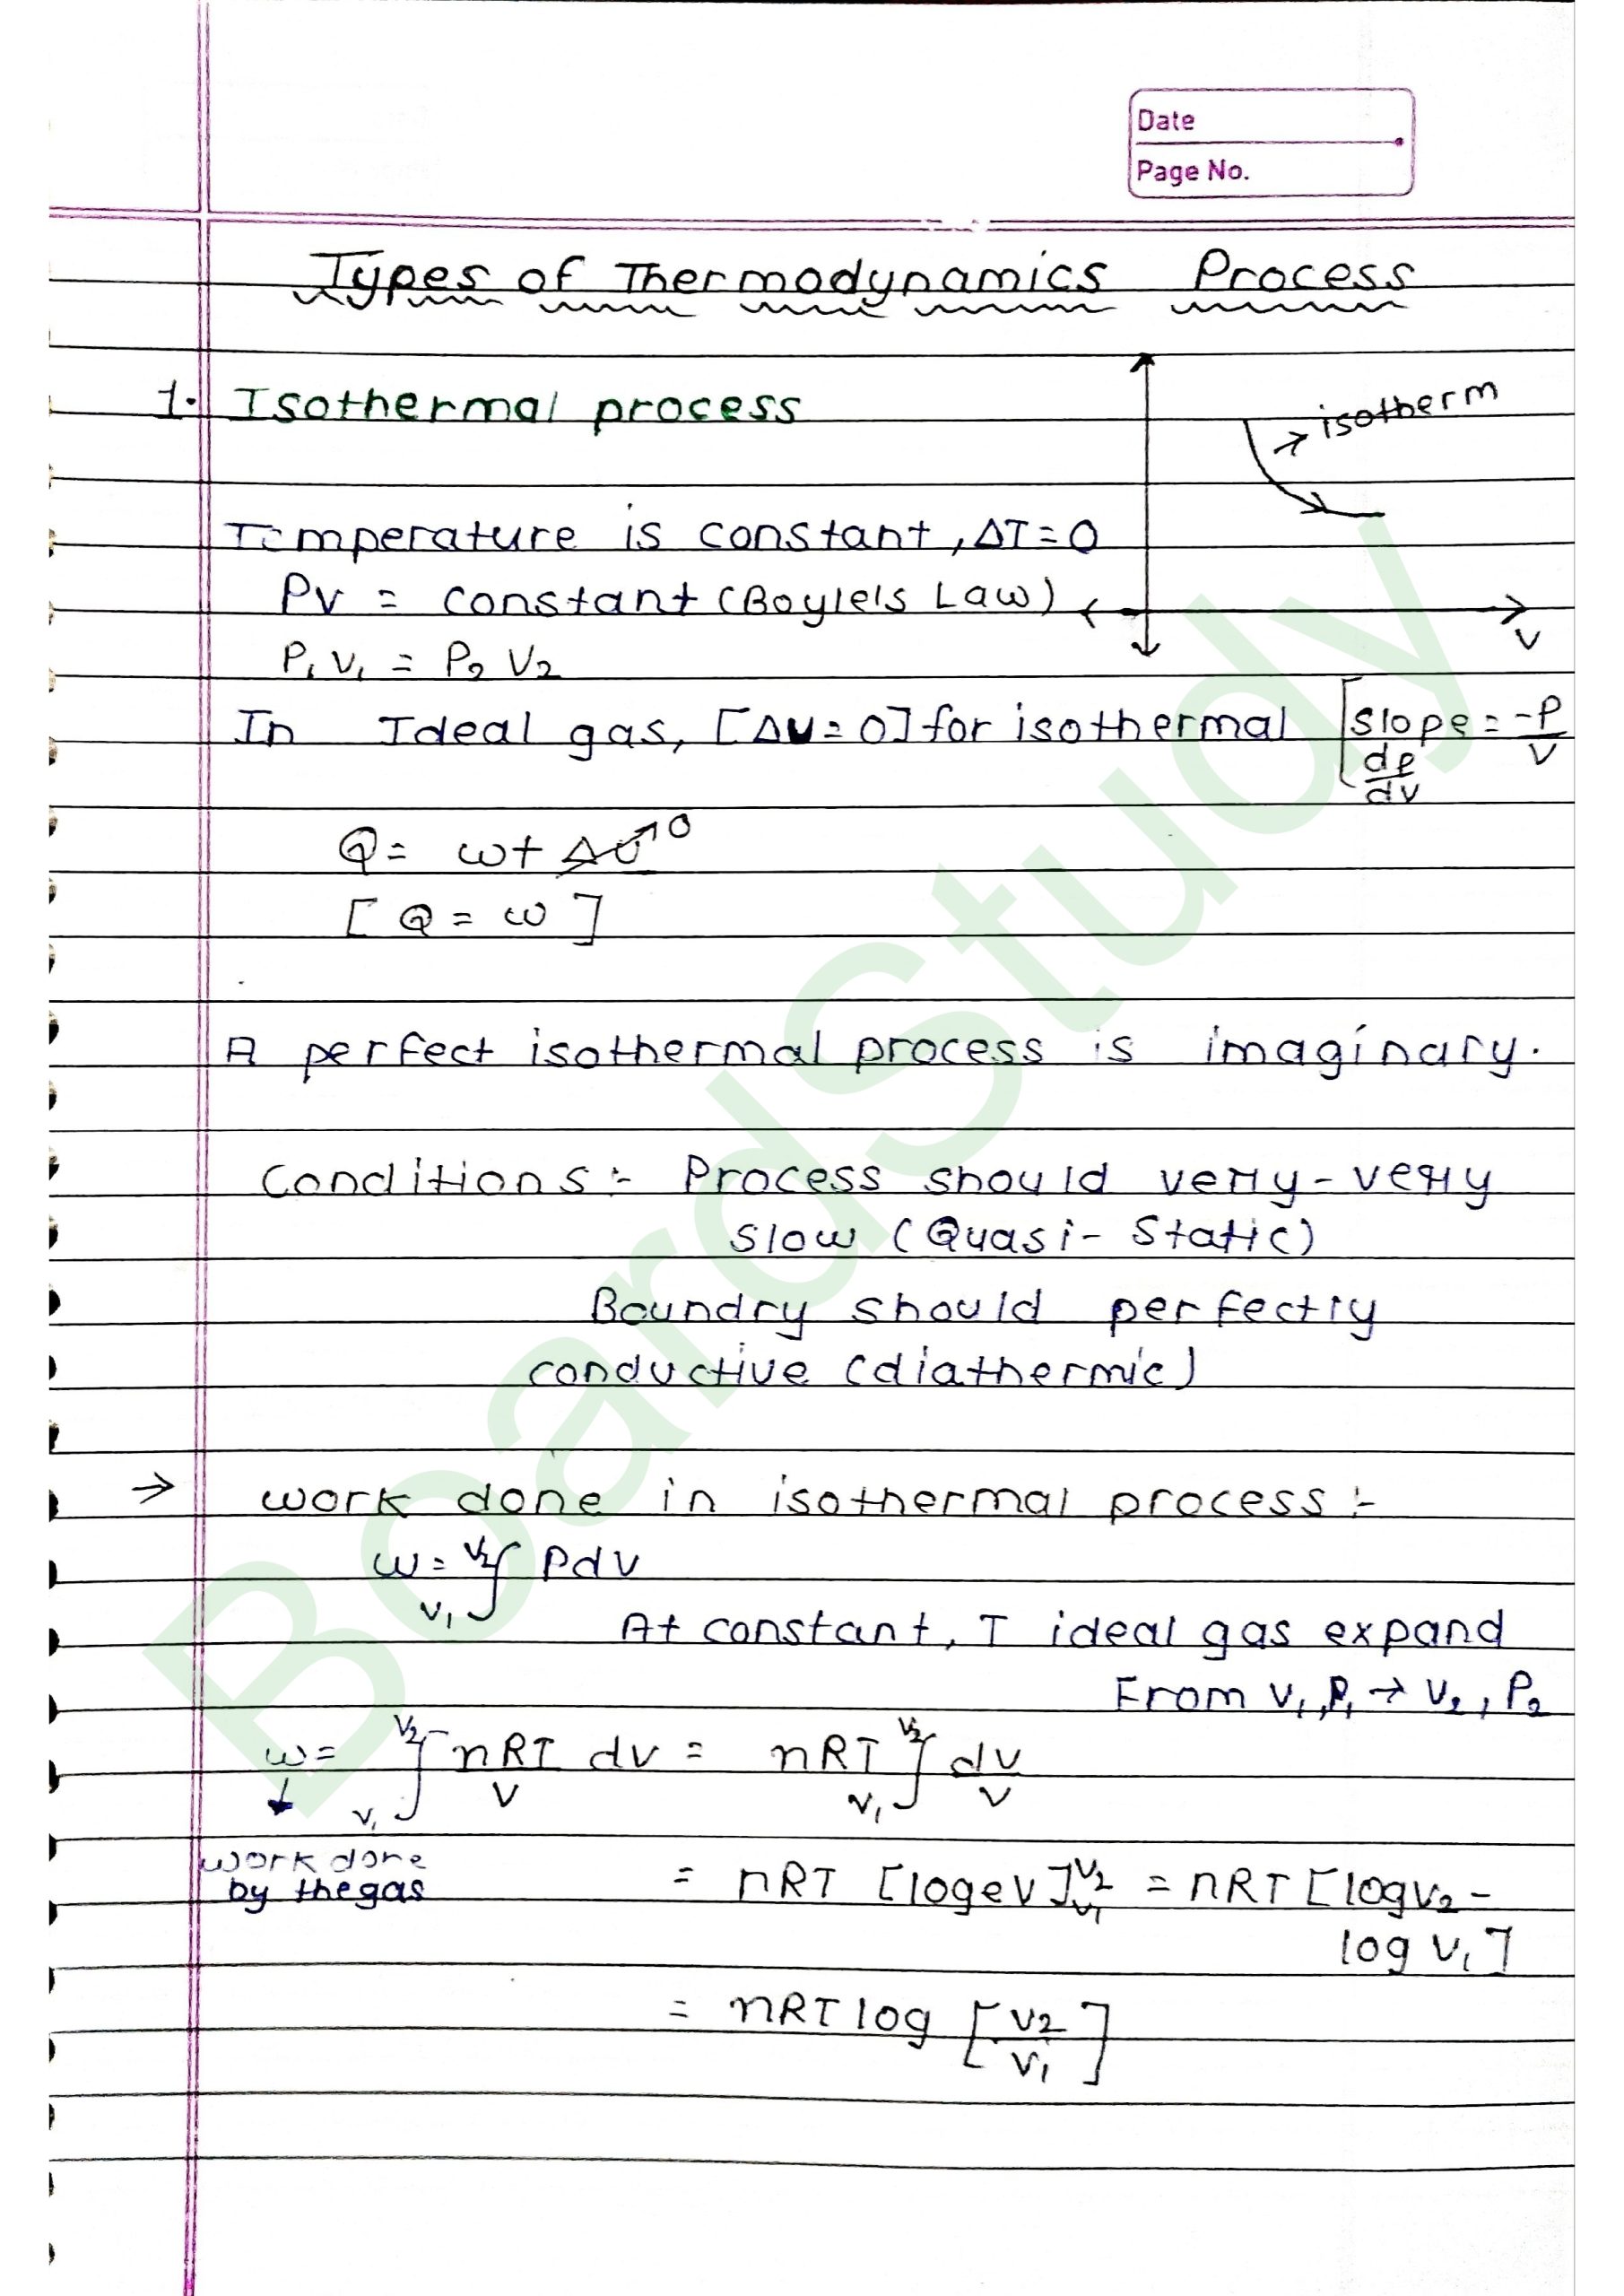 Date
Page No.
Types of Thermodynamics Process
1. Isothermal process
isotherm
Temperature is constant, ΔT=0
PV = constant (Boyle's Law)
V
P₁V₁ = P₂V₂
In Ideal gas, [ΔU=0] for isothermal
[slope = -P/V
dP/dV
Q = W + ΔU↗0
[Q = W]
A perfect isothermal process is imaginary.
Conditions:- Process should very-very
slow (Quasi-Static)
Boundry should perfectly
conductive (diathermic)
→ work done in isothermal process:-
W = V₂∫V₁ PdV
At constant, T ideal gas expand
From V₁,P₁ → V₂, P₂
W = V₂∫V₁ nRT/V dV = nRT V₂∫V₁ dV/V
↓
work done
by the gas
= nRT [logeV]V₂V₁ = nRT [logV₂ -
log V₁]
= nRT log [V₂/V₁]
BoardStudy